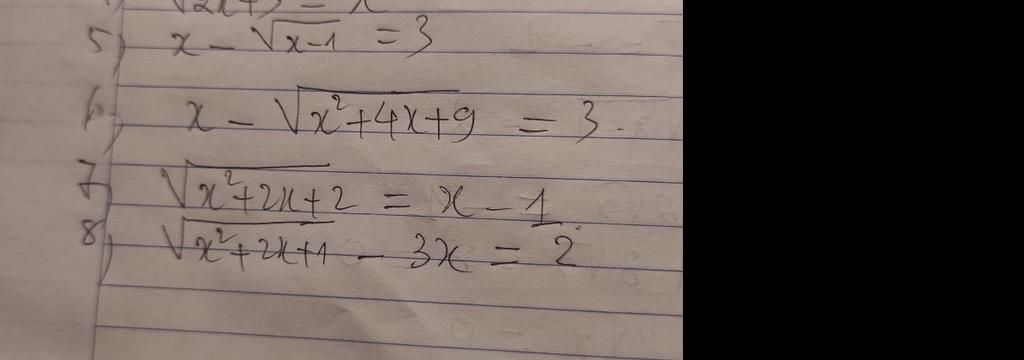 √2x+3 = x
5) x - √x-1 = 3
6) x - √x²+4x+9 = 3.
7) √x²+2x+2 = x - 1
8) √x²+2x+1 - 3x = 2